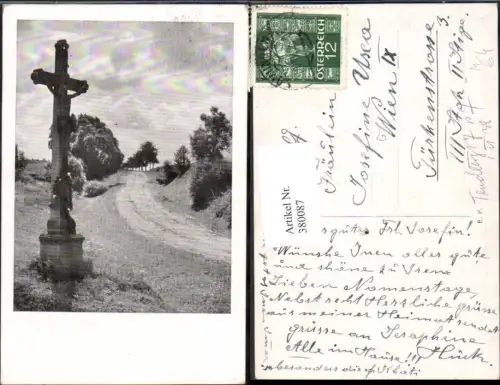 ÖSTERREICH
12
Artikel Nr.
380087
Fräulein
Josefine Usca
Wien IX
Türkenstrasse 3.
III Stgh II Stge.
64
gutes Frl. Josefin!
Wünsche Inen alles gute
und shöne zu Iren
Lieben Namenstage,
Nebst recht Herzliche grüsse
aus meiner Heimat sendet
grüsse an Josephine
Alle im Hause!!! Hück.
besonders die